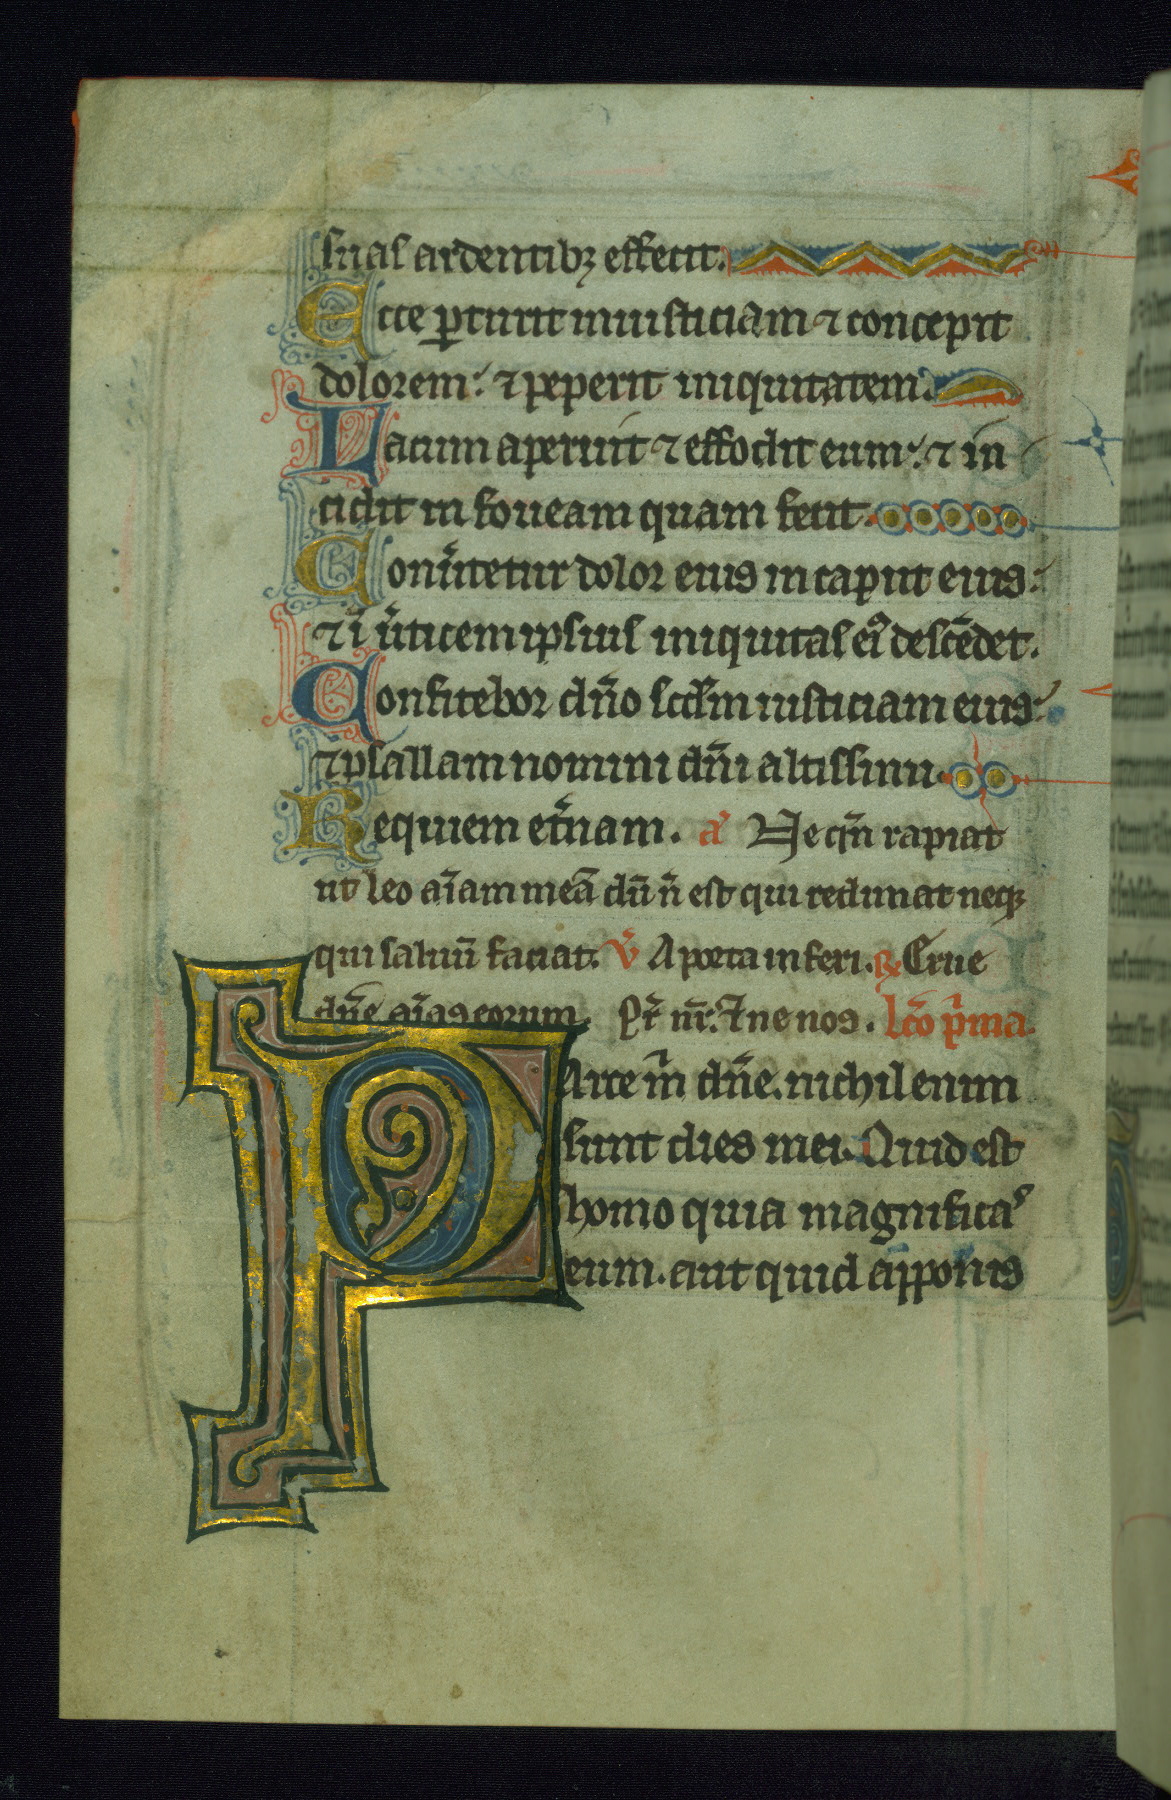 suas ardentibꝫ effecit.
Ecce ꝑturit iniusticiam ⁊ concepit
dolorem: ⁊ peperit iniquitatem.
Lacum aperuit ⁊ effodit eum: ⁊ in
cidit in foueam quam fecit.
Conu̾tetur dolor eius in caput eius:
⁊ ī u̾ticem ipsius iniquitas eiꝰ descēdet.
Confitebor dn̄o scd̄m iusticiam eius:
⁊ psallam nomini dn̄i altissimi.
Requiem et̾nam. a᷑ Neqn̄ rapiat
ut leo aīam meā dū n̄ est qui redimat neqꝫ
qui saluū faciat. V̾ A porta inferi. ℞ Erue
dn̄e aīas eorum. Pr̄ nr̄. ⁊ ne nos. lcō p̾ma.
Parce m̄ dn̄e. nichil enim
sunt dies mei. Quid est
homo quia magnificaˢ
eum. aut quid apponis